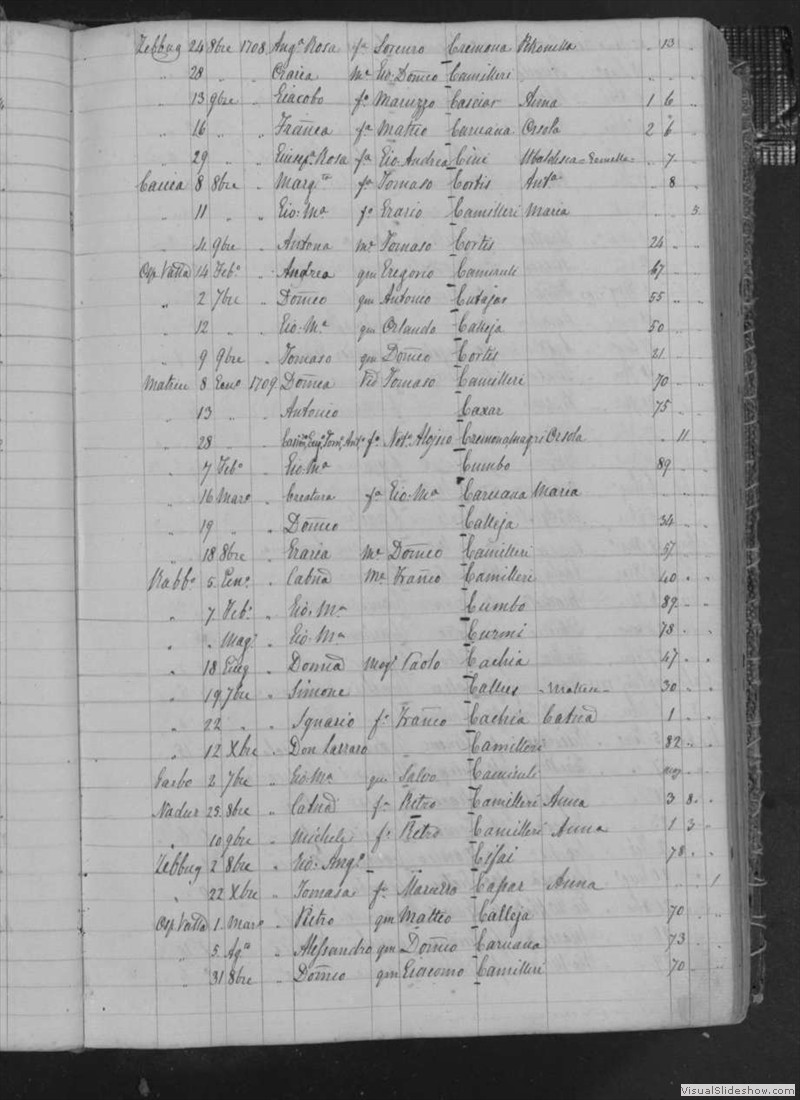 Zebbug 24 8bre 1708 Ang.a Rosa f.a Lorenzo Cremona Petronella " 13 "
" 28 " " Grazia M.e Gio: Dom̃co Camilleri
" 13 9bre " Giacobo f.o Maruzzo Casciar Anna 1 6
" 16 " " Frañca f.a Matteo Caruana Orsola 2 6
" 29 " " Rosa f.a Gio: Andrea Cini 7
Caccia 8 8bre " Marg.ta f.a Tomaso Cortis Ant.a " 8
" 11 " " Gio: M.a f.o Grazio Camilleri Maria " " 5
" 4 9bre " Antona M.e Tomaso Cortis 24
Osp Vallta 14 Feb.o " Andrea qm Gregorio Camenzuli 67
" 2 7bre " Dom̃co qm Antonio Cutajar 55
" 12 " " Gio: M.a qm Orlando Calleja 50
" 9 9bre " Tomaso qm Dom̃co Cortis 21
Matrice 8 Gen.o 1709 Dom̃ca Ved Tomaso Camilleri 70
" 13 " Antonio Caxar 75
" 28 " f.o Not.o Aloysio Cremona Magri Orsola " 11
" 7 Feb.o " Gio: M.a Cumbo 89
" 16 Marzo " Creatura f.a Gio: M.a Caruana Maria
" 19 " " Dom̃co Calleja 34
" 18 8bre " Grazia M.e Dom̃co Camilleri 57
Rabb.o 5 Gen.o " Cat̃na M.e Frañco Camilleri 40
" 7 Feb.o " Gio: M.a Cumbo 89
" " Mag.o " Gio: M.a Curmi 78
" 18 Giug " Dom̃ca Mog.e Paolo Cachia 47
" 19 7bre " Simone Callus - Maltese - 30
" 22 " " Ignazio f.o Frañco Cachia Cat̃na 1
" 12 Xbre " Don Lazzaro Camilleri 82
Garbo 2 7bre " Gio: M.a qm Salvo Camenzuli
Nadur 25 8bre " Cat̃na f.a Pietro Camilleri Anna 3 8
" 10 9bre " Michele f.o Pietro Camilleri Anna 1 3
Zebbug 2 8bre " Gio: Ang.o Cissai 78
" 22 Xbre " Tomasa f.a Maruzzo Caspar Anna " " 1
Osp Vallta 1 Marzo " Pietro qm Matteo Calleja 70
" 5 Ag.to " Alessandro qm Dom̃co Caruana 73
" 31 8bre " Dom̃co qm Giacomo Camilleri 70
VisualSlideshow.com